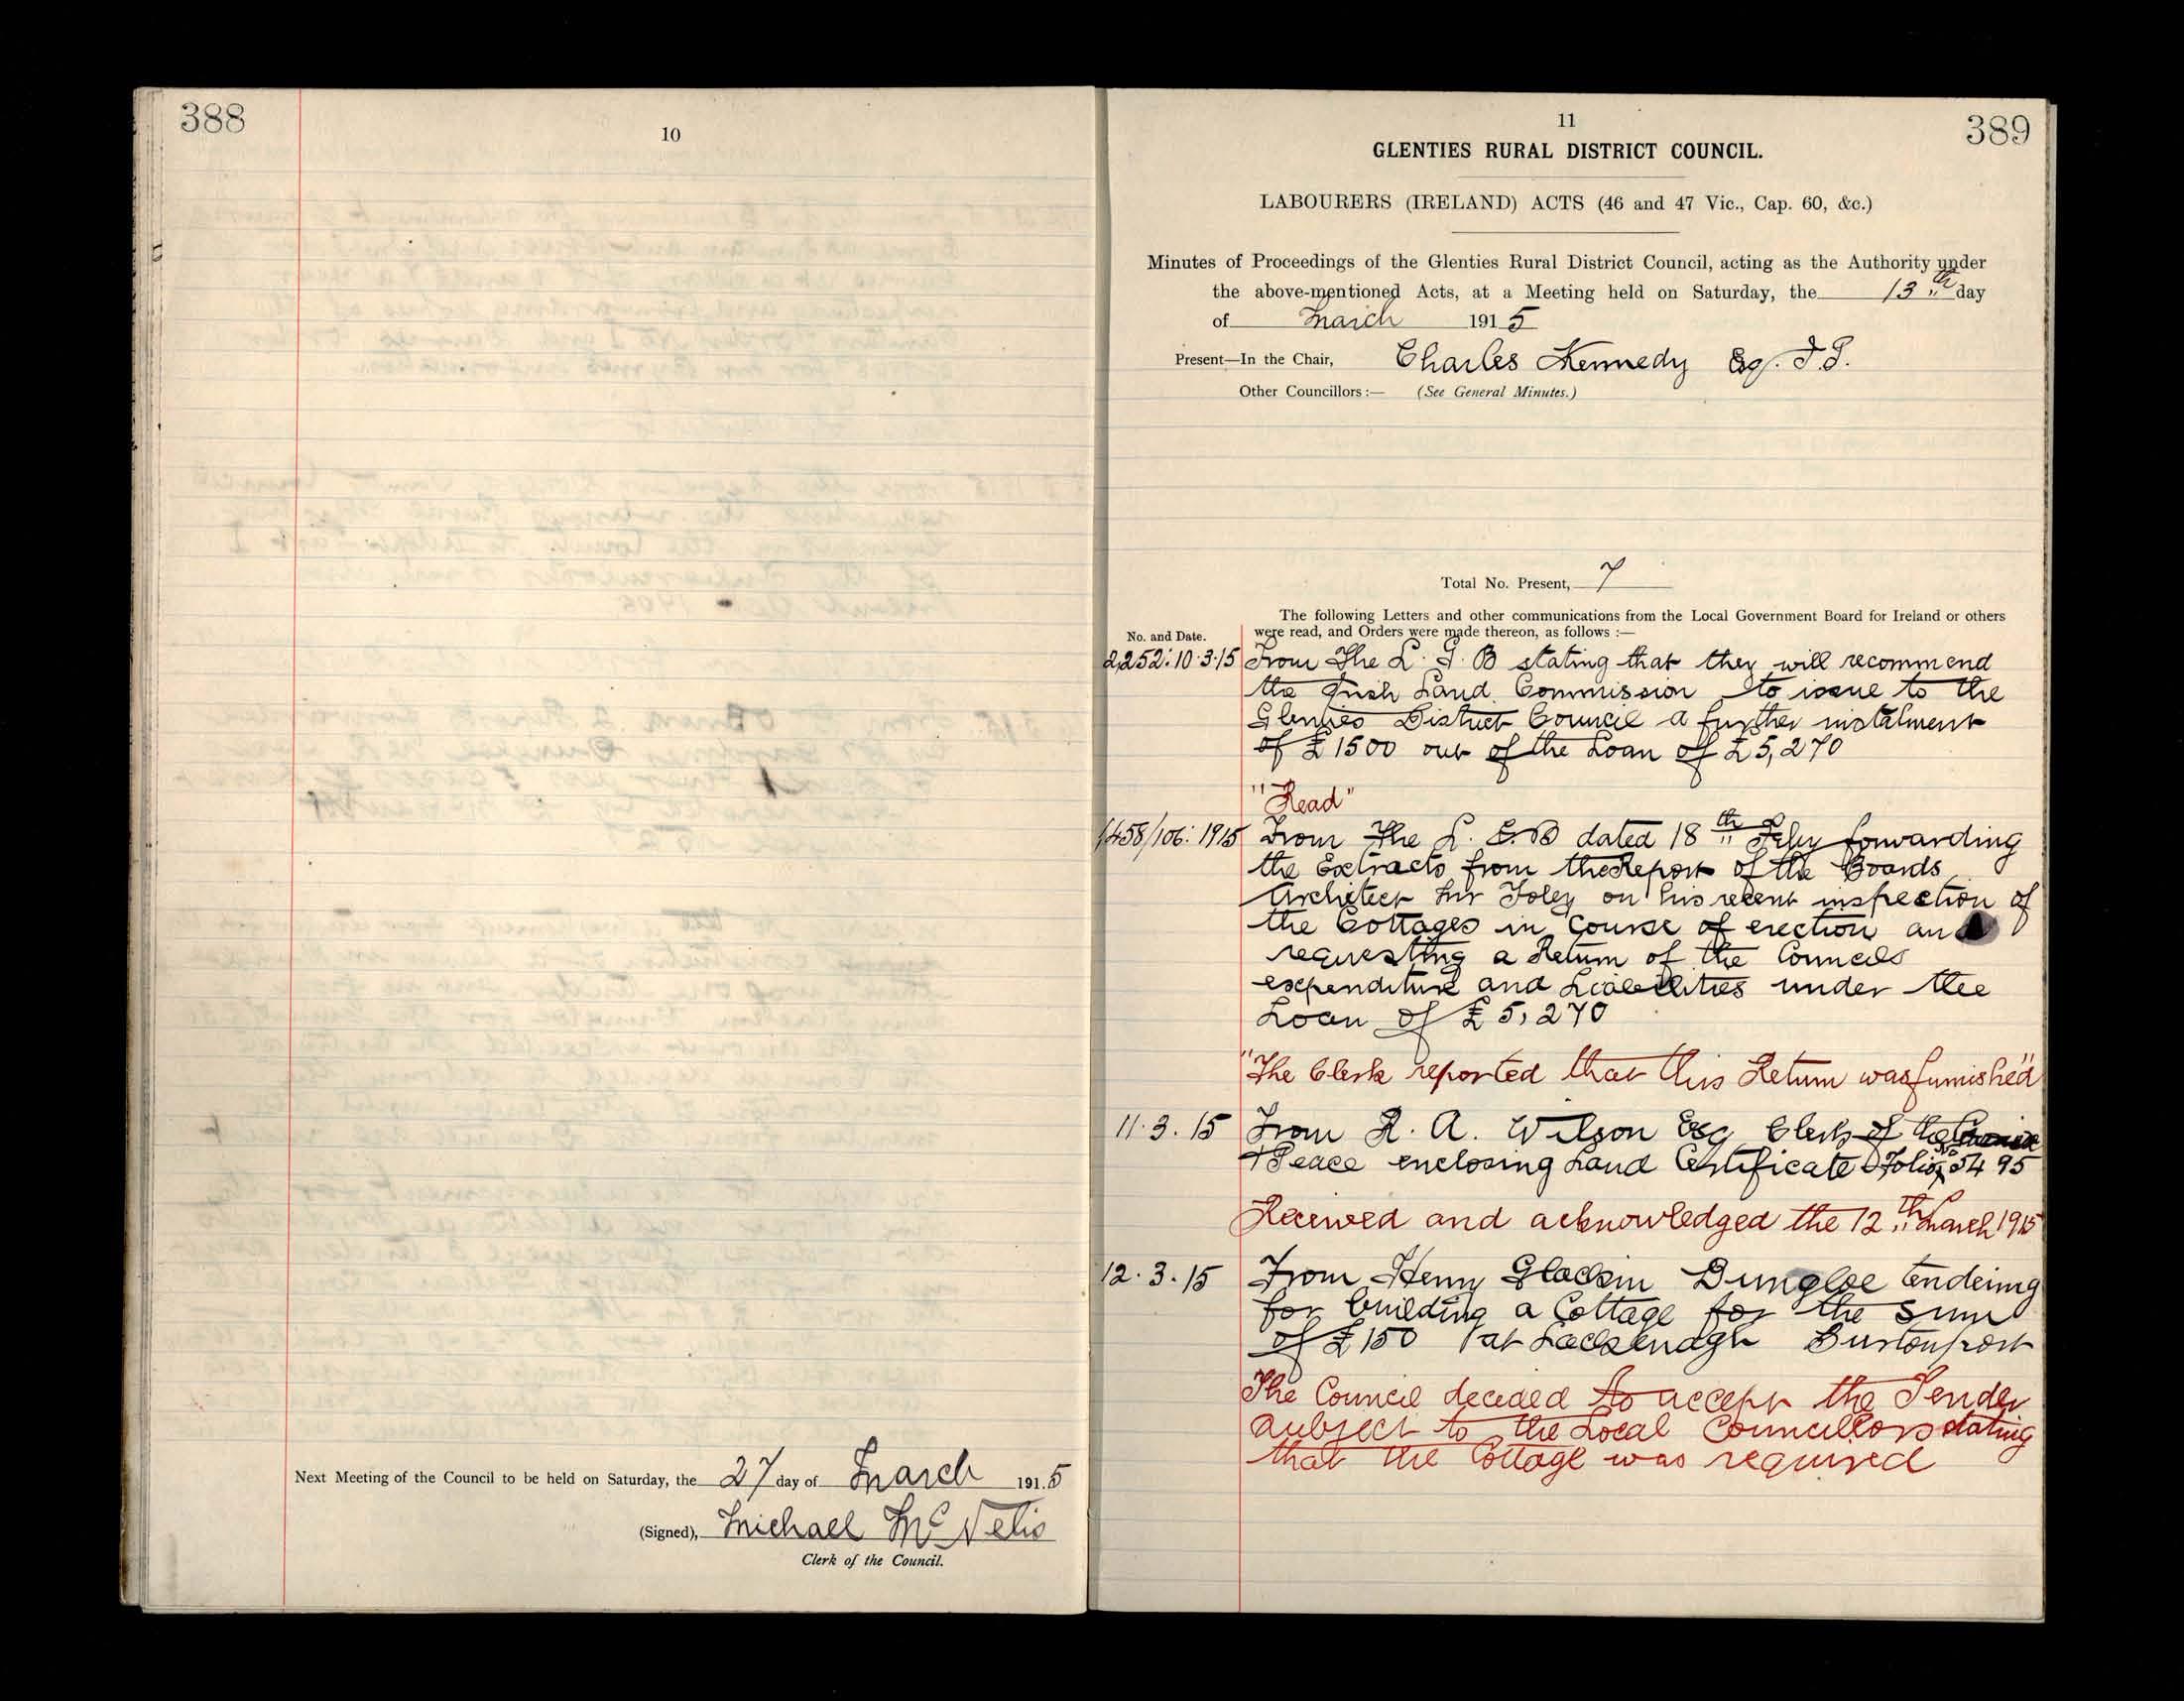 388
10
Next Meeting of the Council to be held on Saturday, the 27 day of March 1915
(Signed), Michael McNelis
Clerk of the Council.
11
389
GLENTIES RURAL DISTRICT COUNCIL.
LABOURERS (IRELAND) ACTS (46 and 47 Vic., Cap. 60, &c.)
Minutes of Proceedings of the Glenties Rural District Council, acting as the Authority under
the above-mentioned Acts, at a Meeting held on Saturday, the 13th day
of March 1915
Present—In the Chair, Charles Kennedy Esq. J.P.
Other Councillors :— (See General Minutes.)
Total No. Present, 7
The following Letters and other communications from the Local Government Board for Ireland or others
No. and Date. were read, and Orders were made thereon, as follows :—
2,252: 10.3.15 From The L. G. B stating that they will recommend
the Irish Land Commission to issue to the
Glenties District Council a further instalment
of £1500 out of the Loan of £5,270
"Read"
1458/106: 1915 From The L. G. B dated 18th Feby forwarding
the Extracts from the Report of the Boards
Architect Mr Foley on his recent inspection of
the Cottages in course of erection and
requesting a Return of the Councils
expenditure and Liabilities under the
Loan of £5,270
"The Clerk reported that this Return was furnished"
11.3.15 From R. A. Wilson Esq Clerk of the Crown
+ Peace enclosing Land Certificate Folio 5495
Received and acknowledged the 12th March 1915
12.3.15 From Henry Glackin Dungloe tendering
for building a Cottage for the sum
of £150 at Lackenagh Burtonport
The Council decided to accept the Tender
subject to the Local Councillors stating
that the Cottage was required